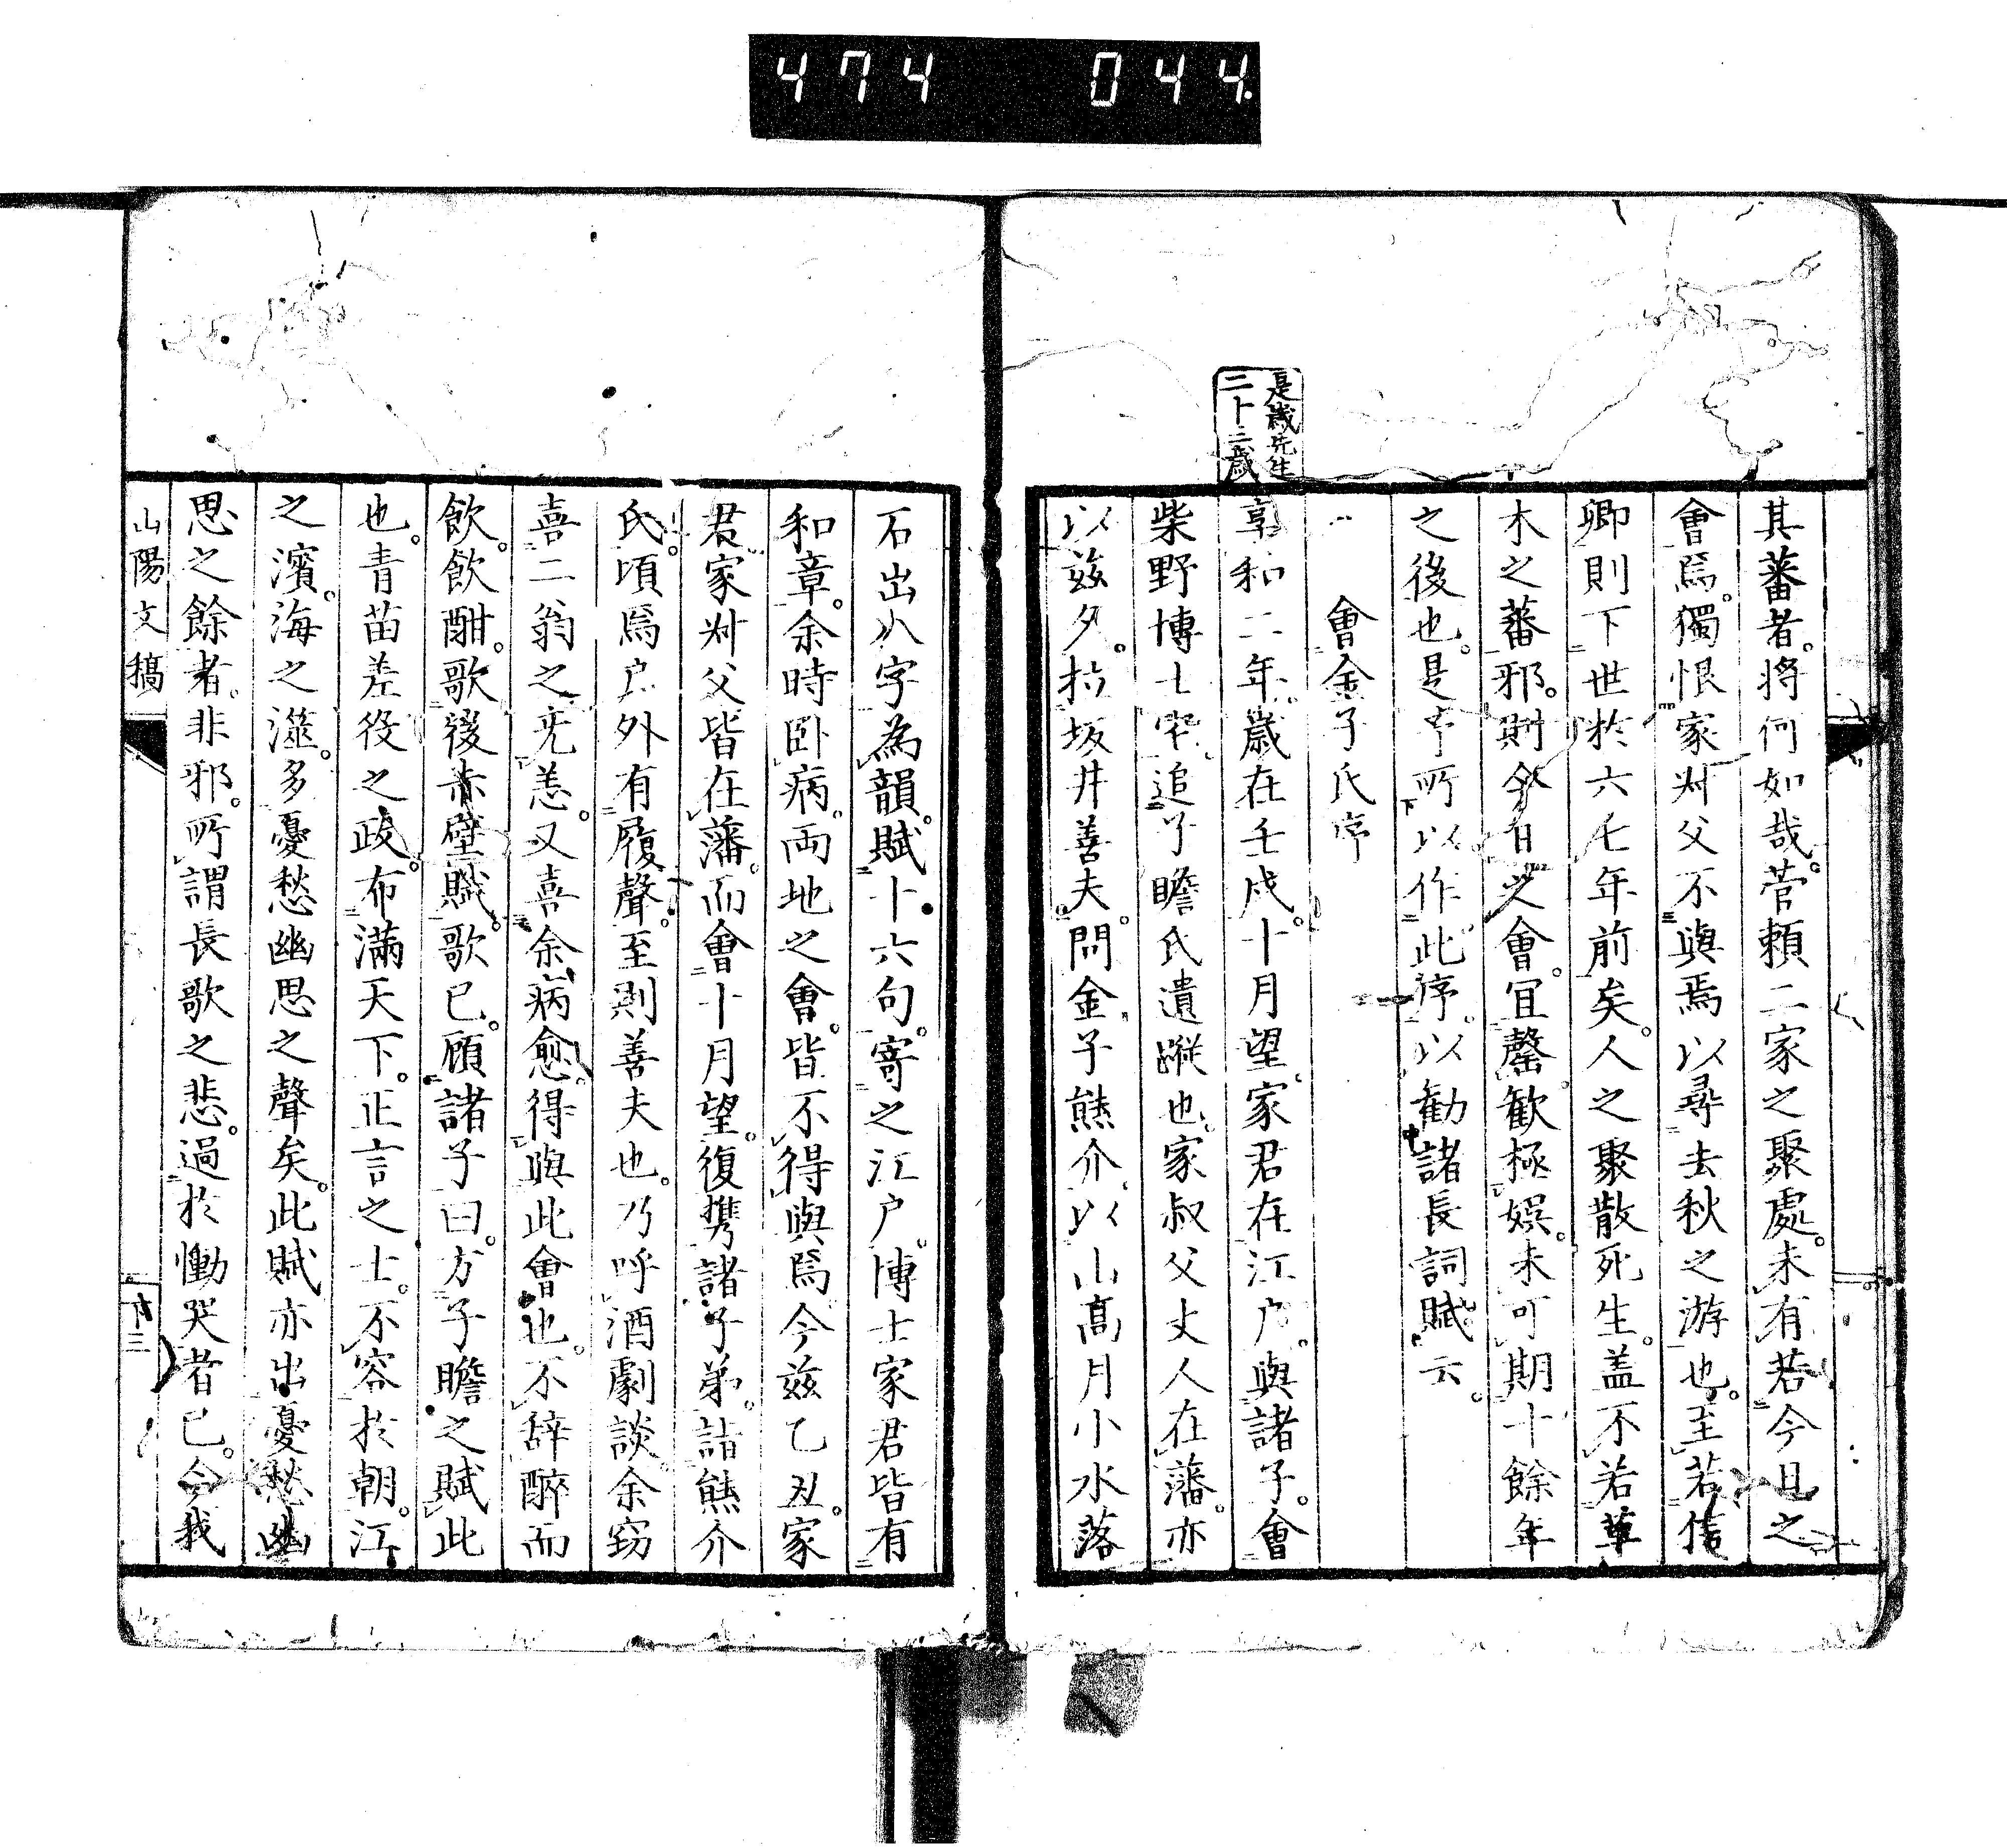 474 044
是歲先生
二十三歲
其蕃者。將何如哉。菅賴二家之聚處。未有若今日之
會焉。獨恨家叔父不與焉以尋去秋之游也。至若信
卿則下世於六七年前矣。人之聚散死生。盖不若草
木之蕃邪。則今日之會。宜罄歡極娛。未可期十餘年
之後也。是予所以作此序。以勸諸長詞賦云。
會金子氏序
享和二年。歲在壬戌。十月望。家君在江戶。與諸子。會
柴野博士宅。追子瞻氏遺蹤也。家叔父丈人在藩。亦
以茲夕。拉坂井善夫。問金子熊介。以山高月小水落
石出八字為韻。賦十六句。寄之江戶。博士家君皆有
和章。余時臥病。兩地之會。皆不得與焉今茲乙丑。家
君家叔父皆在藩。而會十月望。復携諸子弟。詣熊介
氏。頃焉戶外有履聲。至則善夫也。乃呼酒劇談。余窃
喜二翁之无恙。又喜余病愈。得與此會也。不辞醉而
飲。飲酣。歌後赤壁賦。歌已。顧諸子曰。方子瞻之賦此
也。青苗差役之政。布滿天下。正言之士。不容於朝。江
之濱。海之澨。多憂愁幽思之聲矣。此賦亦出憂愁幽
思之餘者。非邪。所謂長歌之悲。過於慟哭者已。今我
山陽文稿
十三